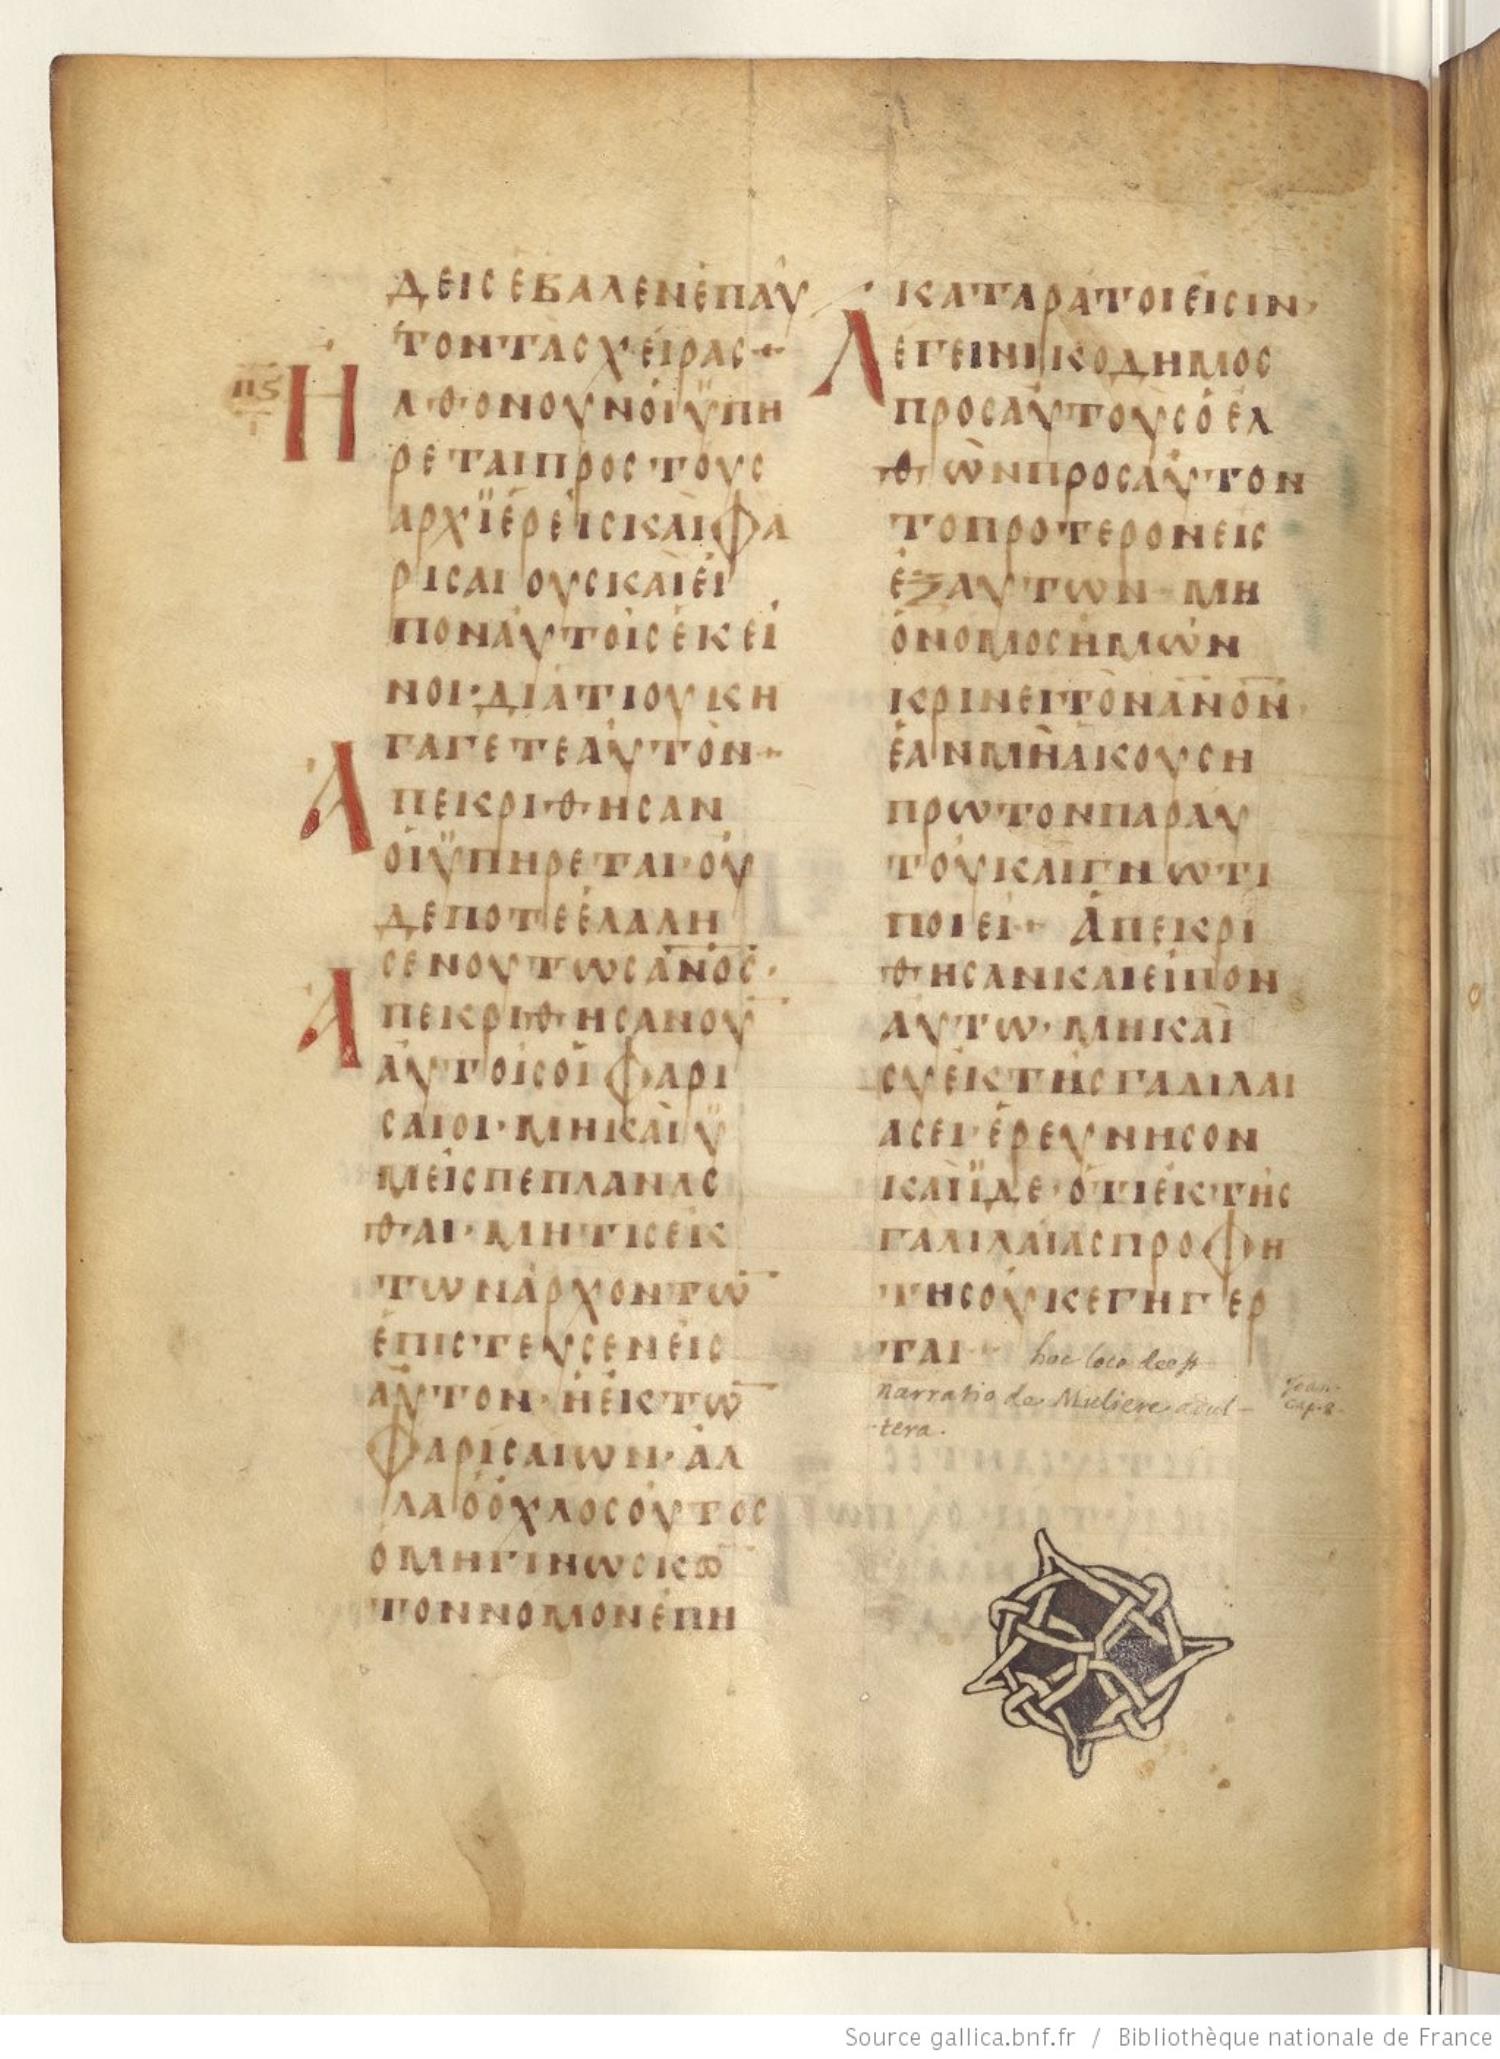 ΔΕΙCΕΒΑΛΕΝΕΠΑΥ
ΤΟΝΤΑCΧΕΙΡΑC
Πς
Ι
ΗΛΘΟΝΟΥΝΟΙΫΠΗ
ΡΕΤΑΙΠΡΟCΤΟΥC
ΑΡΧΪΕΡΕΙCΚΑΙΦΑ
ΡΙCΑΙΟΥCΚΑΙΕΙ
ΠΟΝΑΥΤΟΙCΕΚΕΙ
ΝΟΙ·ΔΙΑΤΙΟΥΚΗ
ΓΑΓΕΤΕΑΥΤΟΝ
ΑΠΕΚΡΙΘΗCΑΝ
ΟΙΫΠΗΡΕΤΑΙ·ΟΥ
ΔΕΠΟΤΕΕΛΑΛΗ
CΕΝΟΥΤΩCΑΝΟC·
ΑΠΕΚΡΙΘΗCΑΝΟΥ̅
ΑΥΤΟΙCΟΙΦΑΡΙ
CΑΙΟΙ·ΜΗΚΑΙΫ
ΜΕΙCΠΕΠΛΑΝΑC
ΘΑΙ·ΜΗΤΙCΕΚ
ΤΩΝΑΡΧΟΝΤΩ̅
ΕΠΙCΤΕΥCΕΝΕΙC
ΑΥΤΟΝ·ΗΕΚΤΩ̅
ΦΑΡΙCΑΙΩΝ·ΑΛ
ΛΑΟΟΧΛΟCΟΥΤΟC
ΟΜΗΓΙΝΩCΚΩ̅
ΤΟΝΝΟΜΟΝΕΠΗ
ΚΑΤΑΡΑΤΟΙΕΙCΙΝ·
ΛΕΓΕΙΝΙΚΟΔΗΜΟC
ΠΡΟCΑΥΤΟΥCΟΕΛ
ΘΩΝΠΡΟCΑΥΤΟΝ
ΤΟΠΡΟΤΕΡΟΝΕΙC
ΕΞΑΥΤΩΝ·ΜΗ
ΟΝΟΜΟCΗΜΩΝ
ΚΡΙΝΕΙΤΟΝΑΝΟΝ·
ΕΑΝΜΗΑΚΟΥCΗ
ΠΡΩΤΟΝΠΑΡΑΥ
ΤΟΥΚΑΙΓΝΩΤΙ
ΠΟΙΕΙ· ΑΠΕΚΡΙ
ΘΗCΑΝΚΑΙΕΙΠΟΝ
ΑΥΤΩ·ΜΗΚΑΙ
CΥΕΚΤΗCΓΑΛΙΛΑΙ
ΑCΕΙ·ΕΡΕΥΝΗCΟΝ
ΚΑΙΪΔΕ·ΟΤΙΕΚΤΗC
ΓΑΛΙΛΑΙΑCΠΡΟΦΗ
ΤΗCΟΥΚΕΓΗΓΕΡ
ΤΑΙ· hoc loco deest
narratio de Muliere adul-
-tera.
Joan.
cap. 8.
Source gallica.bnf.fr / Bibliothèque nationale de France